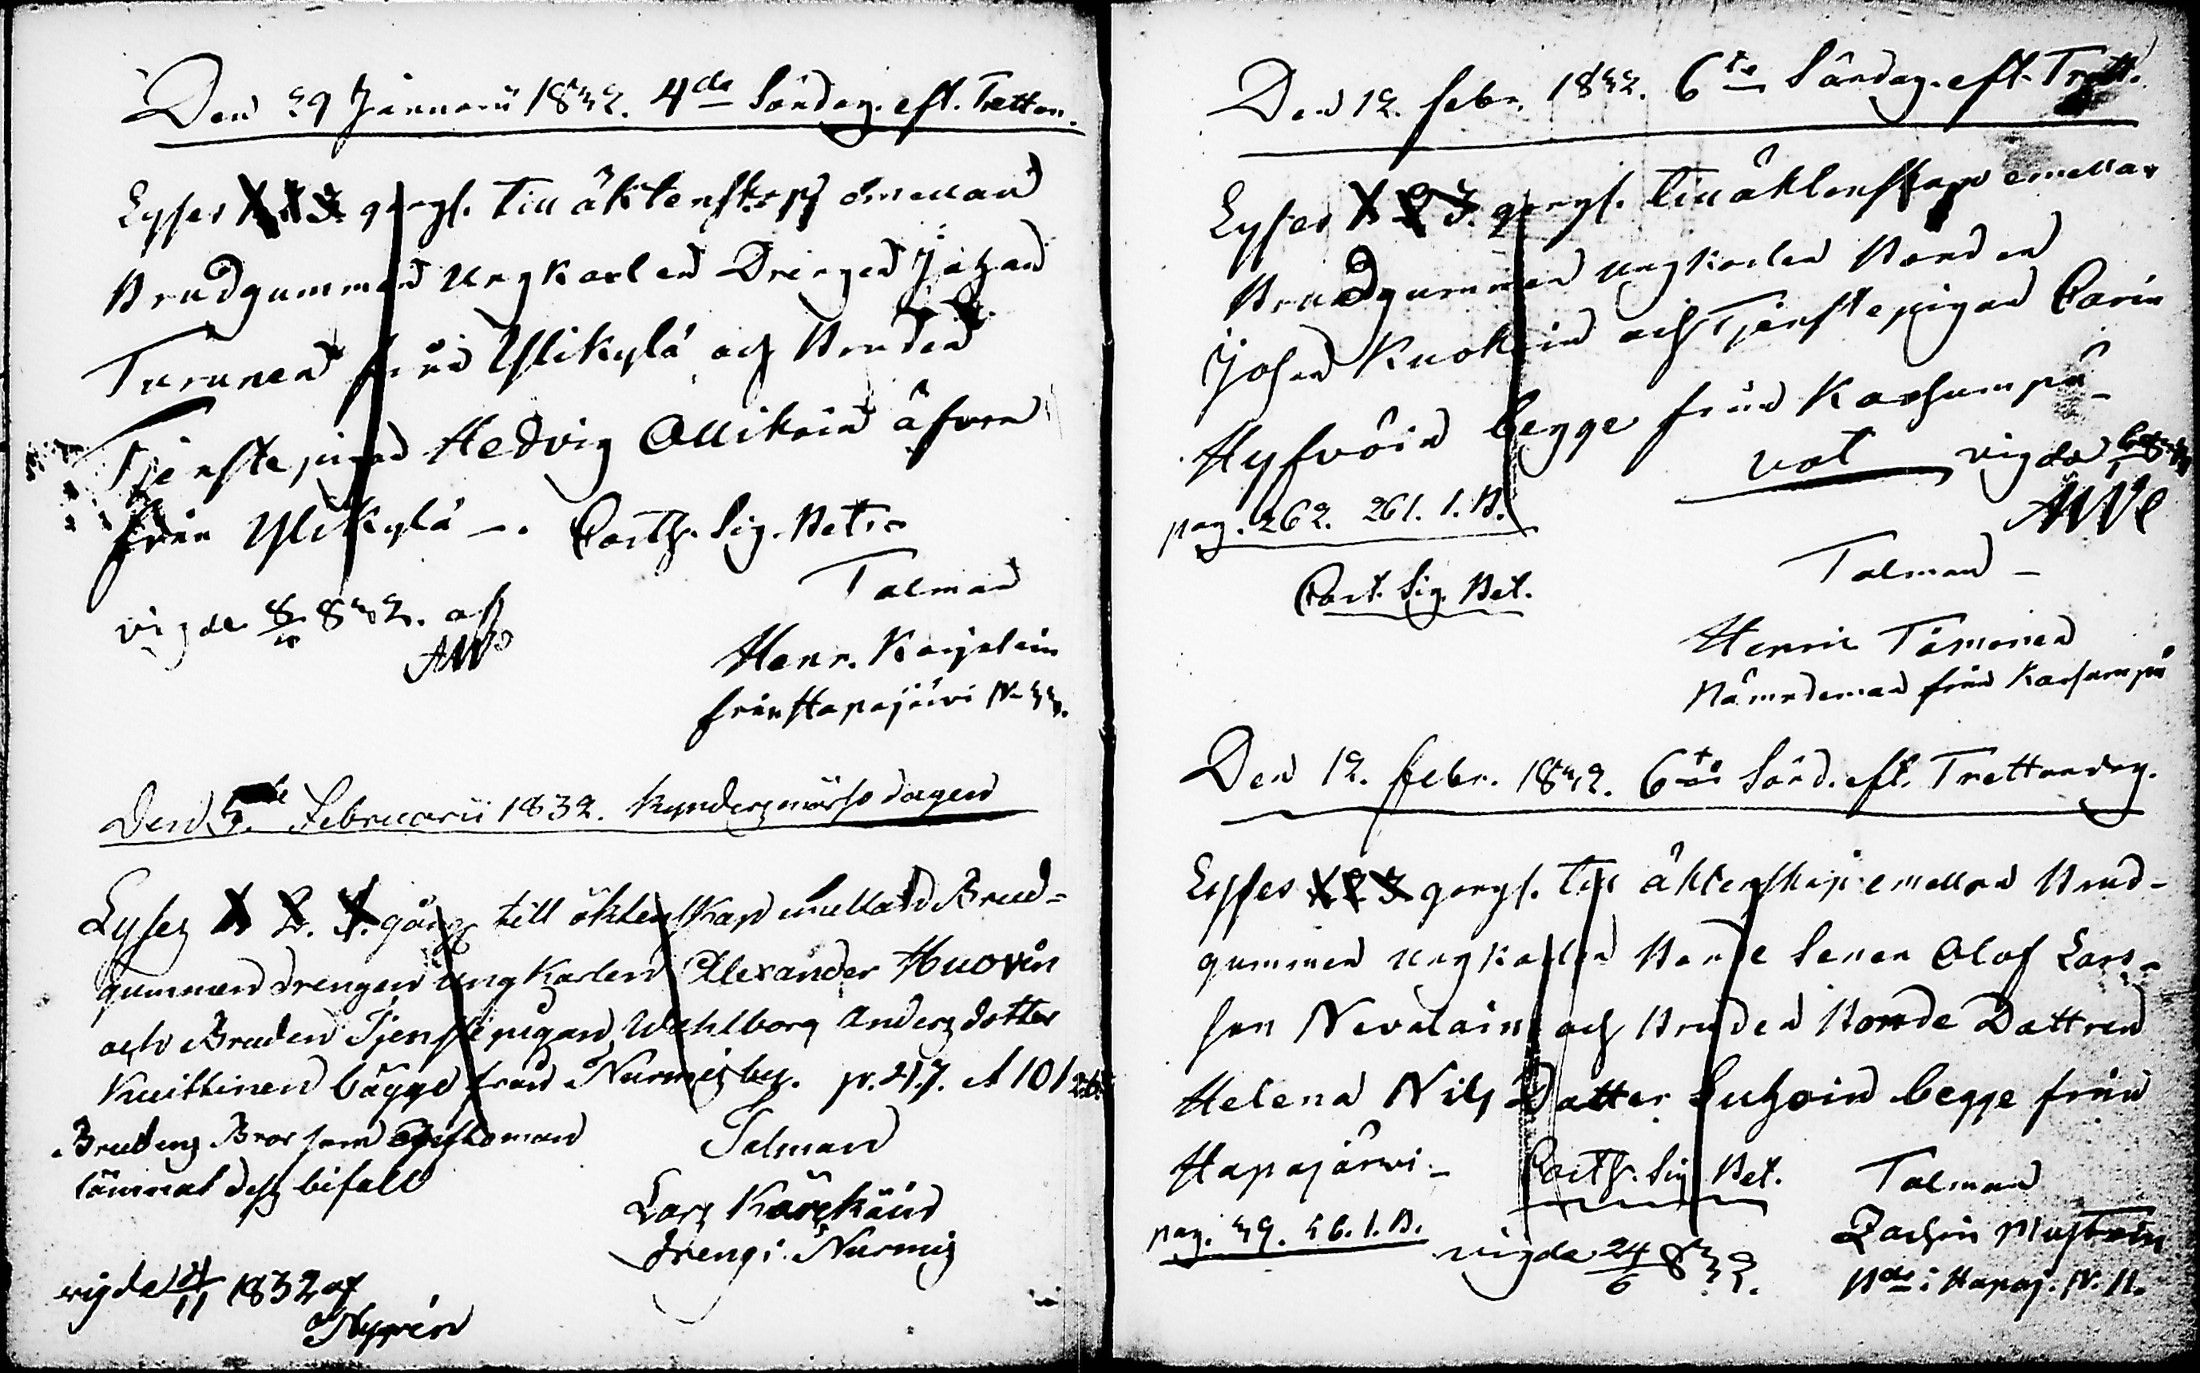 Den 29 Januarii 1832. 4de Söndag. eft. Tretton.
Lyses 1 2 3. gongs. till äktenskap emellan
Brudgummen Ungkarlen Drengen Johan
Turunen från Ylikylä och Bruden
Tjenstepigan Hedvig Ollikain äfven
från Ylikylä –. Posth. Sig. Bet.
Talman
vigde 832. af
AW
Henr. Karjalain
från Hapajärvi N
Den 5te Februarii 1832. Kynderzmässo dagen
Lyses 1 2. 3. gång till äktenskap mellan Brud-
gummen drengen ungkarlen Alexander Huovin
och Bruden Tjenstepigan Wahlborg Anders dotter
Kuittinen bägge från Nurmis by. p. 217. A 101
Brudens Bror som Giftoman
lämnat dess bifall
Talman
Lars Kärckäin
dreng i Nurmis
vigde 4/11 1832 af
Nygrén
Den 12. febr. 1832. 6te Söndag. eft. Trett.
Lyses 1 2 3. gongs. till äktenskap emellan
Brudgummen ungkarlen Bonden
Johan Kuoknin och Tjenstepigan Carin
Hyfvöin begge från Karhunpä-
vat vigde
AW
pag. 262. 261. 1. B.
Post. Sig. Bet.
Talman –
Henric Timonen
Nämndeman från Karhunpä
Den 12. febr. 1832. 6te Sönd. eft. Trettondag.
Lyses 1 2 3 gongs. till äktenskap emellan Brud-
gummen ungkarlen Bonde Sonen Olof Lars-
son Nevalain och Bruden Bonde Dottren
Helena Nils Dotter Suhoin begge från
Hapajärvi – Posth. Sig. Bet.
Talman
pag. 39. 56. 1. B.
vigde 24/6 832.
Zachris Mustoin
Bde i Hapaj. N. 11.